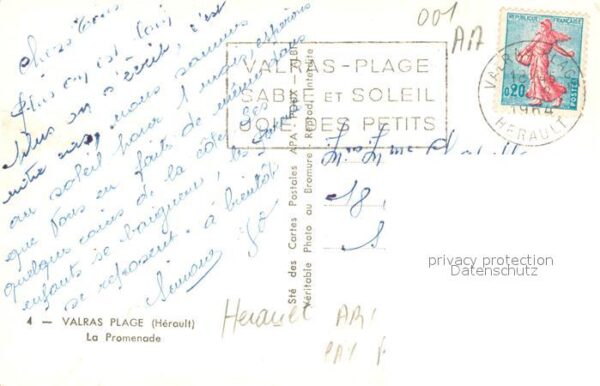 Chers tous
Plus on est loin
plus on s'écrit, c'est
notre cas, nous sommes
au soleil pour 1 mois espérons
que vous en faits de même, pas
quelques coins de la côte. Les
enfants se baignent, les
se reposent. à bientôt
Simone
4 — VALRAS PLAGE (Hérault)
La Promenade
Sté des Cartes Postales APA - POUX - ALBI
Véritable Photo au Bromure - Reprod. Interdite
VALRAS-PLAGE
SABLE ET SOLEIL
JOIE DES PETITS
001
REPUBLIQUE FRANÇAISE
0,20
POSTES
VALRAS-PLAGE
1964
HERAULT
18,
privacy protection
Datenschutz
Herault